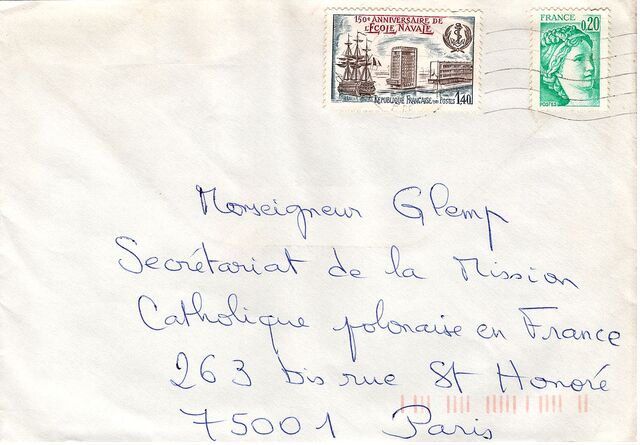 150e ANNIVERSAIRE DE
L'ÉCOLE NAVALE
RÉPUBLIQUE FRANÇAISE POSTES 1,40
FRANCE
0,20
POSTES
Monseigneur Glemp
Secrétariat de la Mission
Catholique polonaise en France
263 bis rue St Honoré
75001 Paris